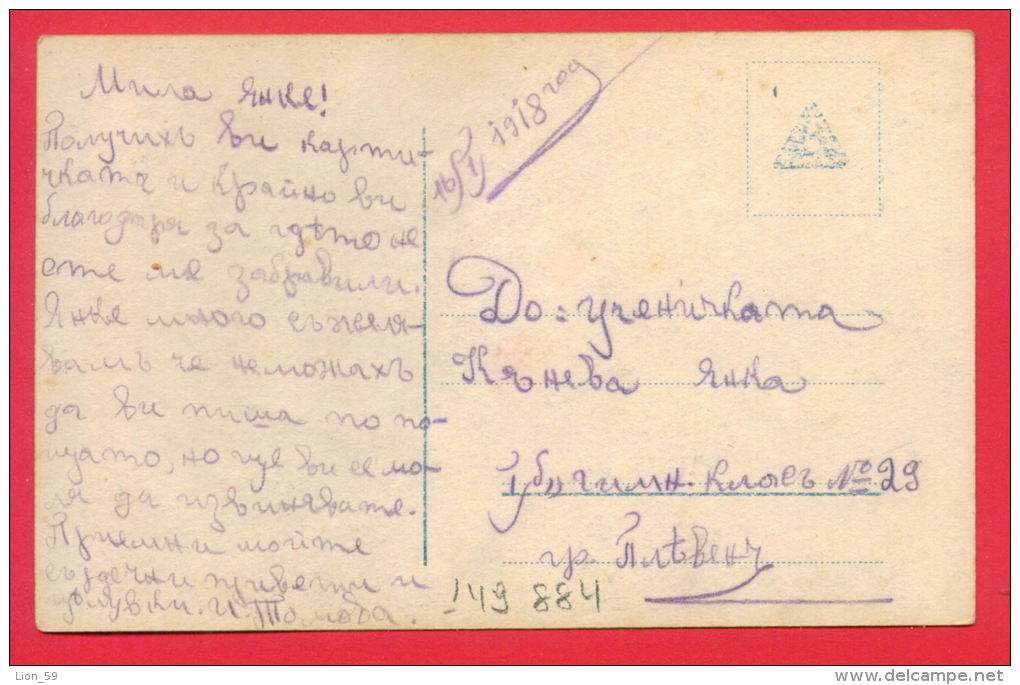 Мила Янке!
Получихъ ви карти-
чката и крайно ви
благодаря за гдѣто не
сте ме забравили.
Янке много съжеля-
вамъ че неможахъ
да ви пиша по по-
щато, но ще ви се мо-
ля да извинявате.
Приемни мойте
сърдечни цивети и
цѣлувки. И. Томова.
16/I 1918 год
До: ученичката
Кънева Янка
I "б" гимн. класъ № 29
гр. Плѣвенъ
149 884
Lion_59